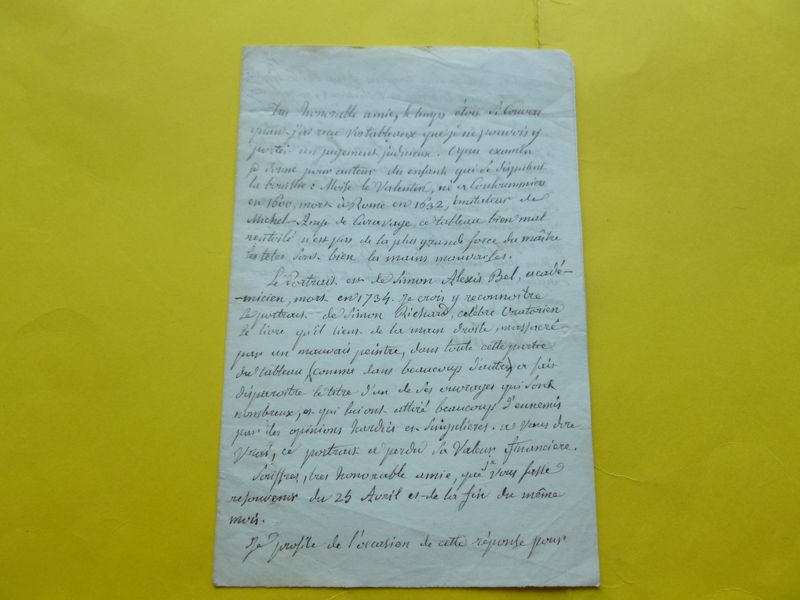 Très honorable amie, le temps étoit si couvert
quand j'ai reçu vos tableaux que je ne pouvois y
porter un jugement judicieux. Après examen
je donne pour auteur des enfants qui se disputent
la bourse: Moïse le Valentin, né à Coulommiers
en 1600, mort à Rome en 1632, imitateur de
Michel-Ange de Caravage, ce tableau bien mal
rentoilé n'est pas de la plus grande force du maître
les têtes sont bien les mains mauvaises.
Le Portrait est de Simon Alexis Bel, acadé-
-micien, mort en 1734. Je crois y reconnoître
le portrait de Simon Richard, célèbre Oratorien
le livre qu'il tient de la main droite, massacré
par un mauvais peintre, dans toute cette partie
du tableau (comme dans beaucoup d'autres) a fait
disparoitre le titre d'un de ses ouvrages qui sont
nombreux, et qui lui ont attiré beaucoup d'ennemis
par des opinions hardies et singulières. a vous dire
vrai, ce portrait a perdu sa valeur financière.
Souffrez, très honorable amie, que je vous fasse
resouvenir du 25 Avril et de la fin du même
mois.
Je profite de l'occasion de cette réponse pour